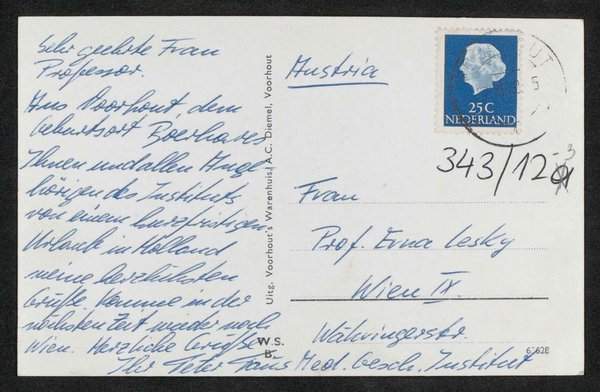 Sehr geehrte Frau
Professor.
Aus Voorhout dem
Geburtsort Boerhaves
Ihnen und allen Ange-
hörigen des Instituts
von einem kurzfristigen
Urlaub in Holland
meine herzlichsten
Grüße. Komme in der
nächsten Zeit wieder nach
Wien. Herzliche Grüße
Ihr Peter
Uitg. Voorhout's Warenhuis, A.C. Diemel, Voorhout
W.S.
B.
Austria
25C
NEDERLAND
343/12
Frau
Prof. Erna Lesky
Wien IX.
Währingerstr.
Med. Gesch. Institut